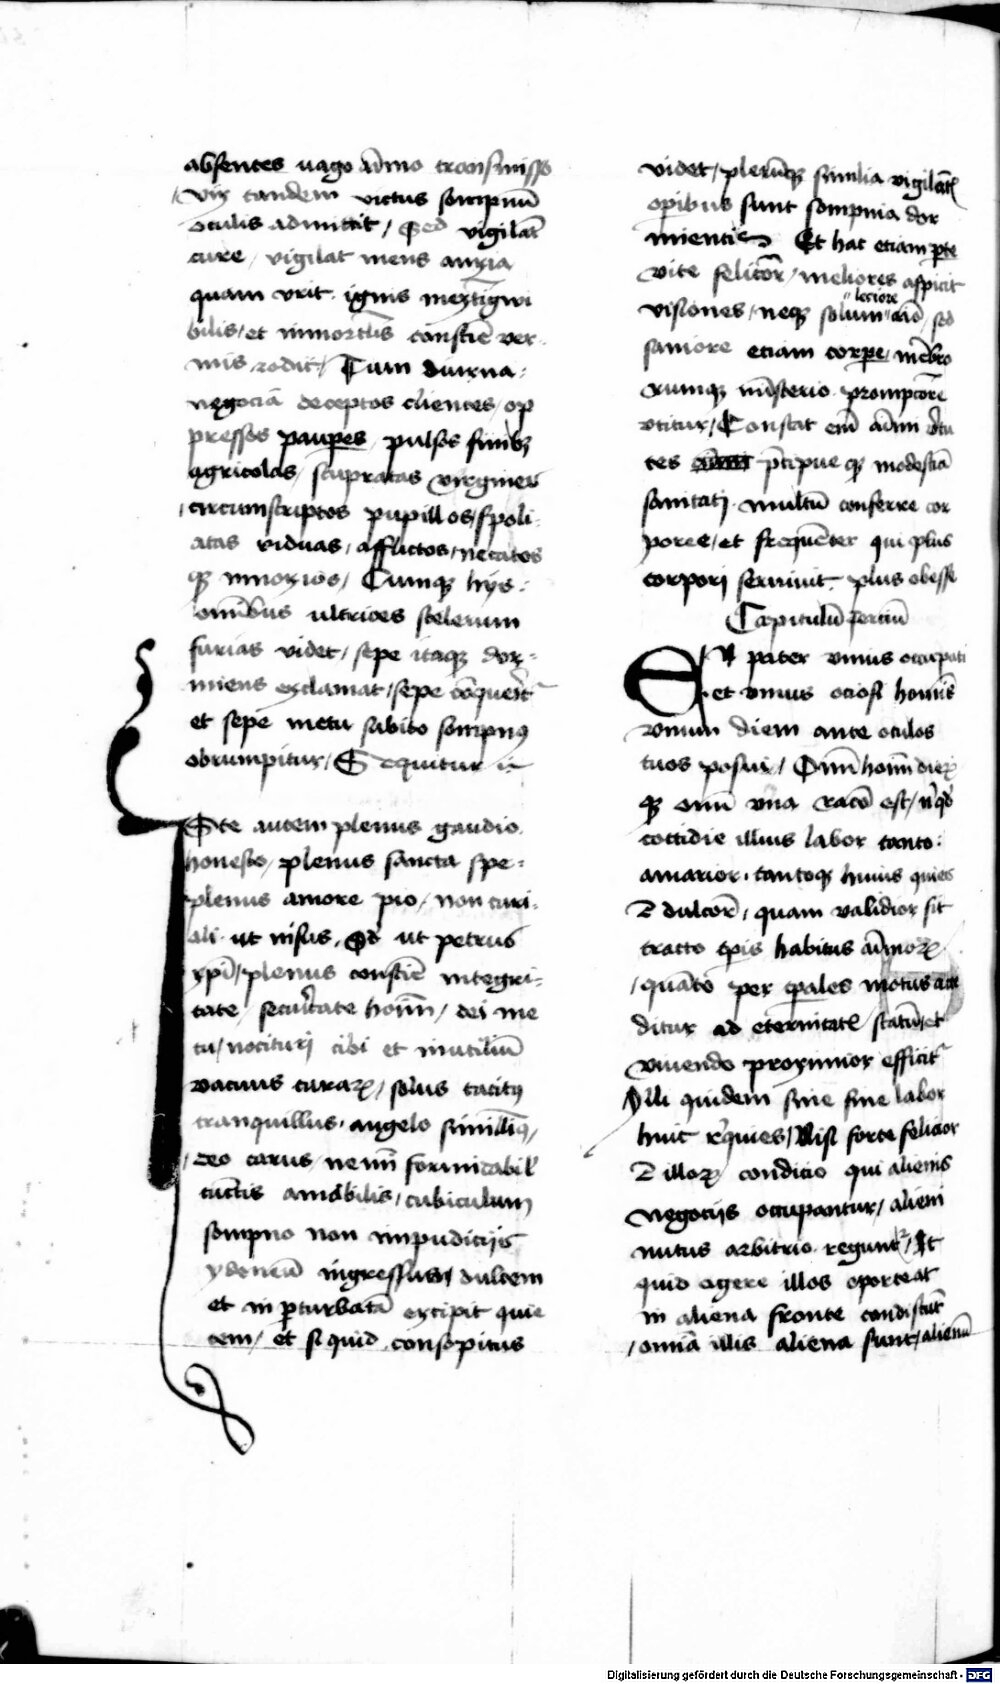 absentes vago aīmo transmisso
/vix tandem victus sompnū
oculis admittit / Sed vigilāt
cure / vigilat mens anxia
quam vrit ignis inextīgwi
bilis / et inmortał consciē ver
mis rodit / Tum diurna
negocia deceptos clientes / op
pressos pauperes / pulsos finibꝫ
agricolas / stupratas virgines
/ circumscriptos pupillos / spoli
atas viduas / afflictos / necatos
qꝫ innoxios / Cumqꝫ hijs
omībus ultrices scelerum
furias videt / sepe itaqꝫ dor
miens exclamat / sepe cōqueritᵉ
et sepe metu subito sompnꝯ
obrumpitur / Sequitur
Iste autem plenus gaudio
honesto / plenus sancta spe
plenus amore pio / non curi
ali ut nisus / Sꝫ ut petrus
xp̄i / plenus consciē integri
tate / securitate hoīm / dei me
tu / nocituri cibi et inutiliū
vacuus curaꝝ / solus tacitꝯ
tranquillus / angelo simillimꝯ /
deo carus / nemī formidabił
cūctis amabilis / cubiculum
sompno non impudicijs
ydoneū ingressus / dulcem
et inp̄turbatā excipit quie
tem / et si quid consopitus
videt / plerūqꝫ similia vigilātꝭ
opibus sunt sompnia dor
mientis Et hac etiam p̄te
vite felicior / meliores aspicit
visiones / neqꝫ solum leciore aīo / sed
saniore etiam corpore / mēbro
rumqꝫ ministerio promptiore
vtitur / Constat enī aīmi virtu
tes p̄cipueqꝫ modestiā
sanitati multū conferre cor
poree / et frequēter qui plus
corpori seruiuit plus obesse
Capitulū Terciū
EN pater vnius occupati
et vnius ociosi homīs
vnum diem ante oculos
tuos posui / Omīm hoīm dieꝝ
qꝫ omīm vna racō est / nꝭ qꝫ
cottidie illius labor tanto
amarior / tantoqꝫ huius quies
ē dulcior / quam validior sit
tracto tp̄is habitus aīmoꝝ
/ quāto per tp̄ales motus acce
ditur ad eternitatꝭ statū / et
viuendo proximior efficitᵉ
Illi quidem sine fine labor
huic requies / Nisi forte felicior
ē illoꝝ condicio qui alienis
negocijs occupantur / alieni
nutus arbitrio reguntᵉ / et
quid agere illos oporteat
in aliena fronte condiscūt
/ omīa illis aliena sunt / alienū
Digitalisierung gefördert durch die Deutsche Forschungsgemeinschaft - DFG